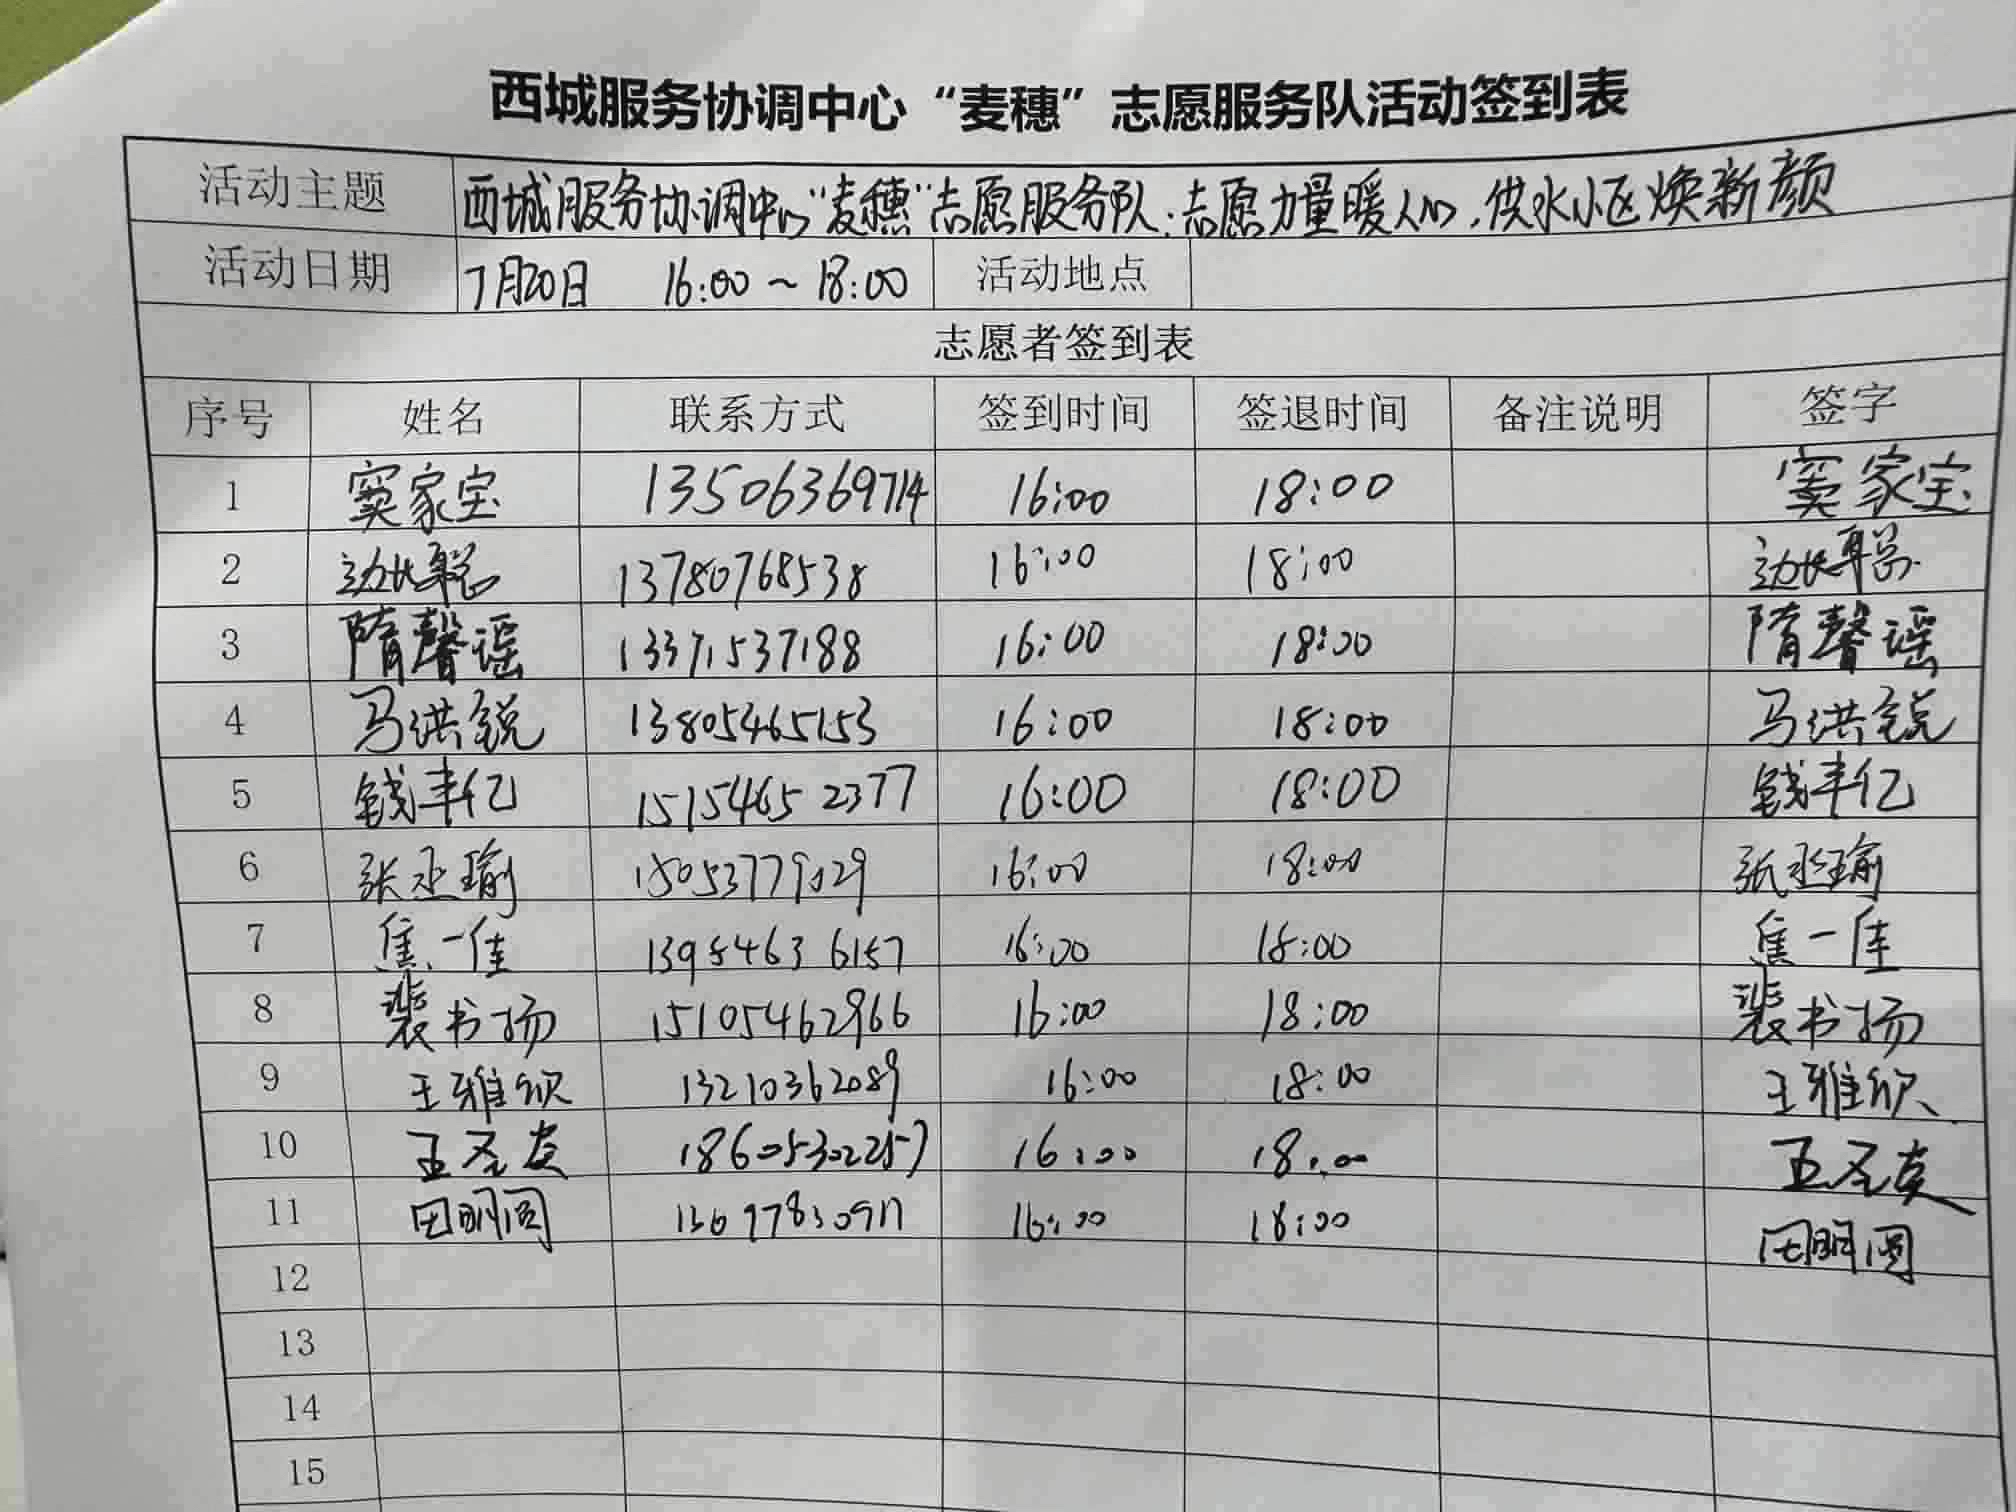 西城服务协调中心“麦穗”志愿服务队活动签到表
活动主题 西城服务协调中心“麦穗”志愿服务队:志愿力量暖人心,供水小区焕新颜
活动日期 7月20日 16:00~18:00 活动地点
志愿者签到表
序号 姓名 联系方式 签到时间 签退时间 备注说明 签字
1 窦家宝 13506369714 16:00 18:00 窦家宝
2 13780768538 16:00 18:00
3 隋馨谣 13371537188 16:00 18:00 隋馨谣
4 马洪锐 13805465153 16:00 18:00 马洪锐
5 钱丰亿 15154652377 16:00 18:00 钱丰亿
6 张丞瑜 15053779029 16:00 18:00 张丞瑜
7 焦一佳 13954636157 16:00 18:00 焦一佳
8 裴书扬 15105462966 16:00 18:00 裴书扬
9 王雅欣 13210362089 16:00 18:00 王雅欣
10 18605302257 16:00 18:00
11 田明圆 16:00 18:00 田明圆
12
13
14
15